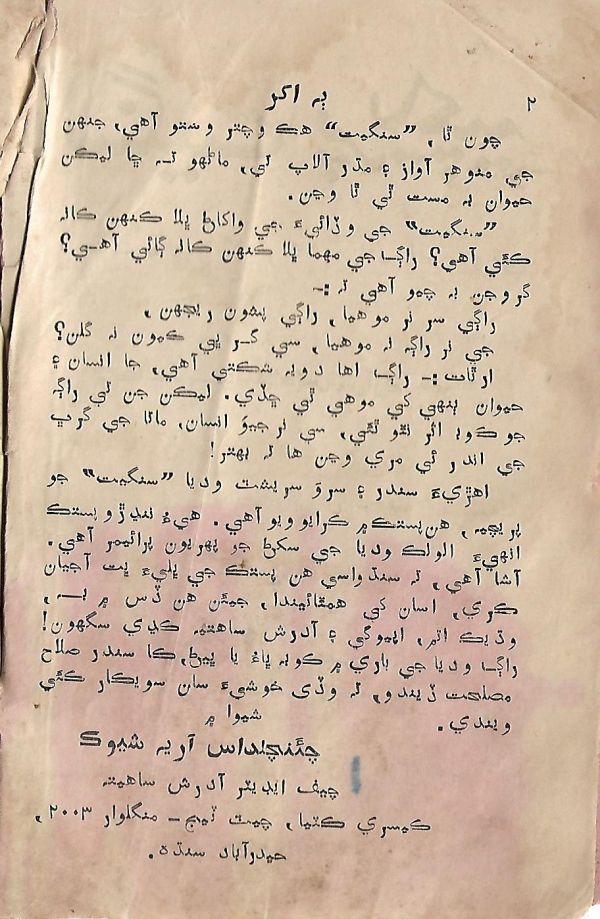 ٢
ٻه اکر
چون ٿا, ”سنگيت“ هڪ وچتر وستو آهي, جنهن
جي منوهر آواز ۽ مڌر آلاپ تي, ماڻهو تہ ڇا ليڪن
حيوان بہ مست ٿي ٿا وڃن.
”سنگيت“ جي وڏائيءَ جي واکاڻ ڀلا ڪنهن کان
ڪٿي آهي؟ راڳ جي مهما ڀلا ڪنهن کان ڳائي آهي؟
گروجن بہ چيو آهي تہ :-
راڳي سر نر موهيا, راڳي پشون ريجهن,
جي نر راڳہ نہ موهيا, سي گر ڀي ڪيون نہ گلن؟
ارٿات :- راڳ اها دويہ شڪتي آهي, جا انسان ۽
حيوان ٻنهي کي موهي ٿي ڇڏي. ليڪن جن تي راڳہ
جو ڪوبہ اثر نٿو ٿئي, سي نرجيو انسان, ماتا جي گرڀ
جي اندر ئي مري وڃن ها تہ بهتر!
اهڙيءَ سندر ۽ سرو سريشت وديا ”سنگيت“ جو
پريچيہ, هن پستڪ ۾ ڪرايو ويو آهي. هيءُ ننڍڙو پستڪ
انهيءَ الولڪ وديا جي سکڻ جو پهريون پرائيمر آهي.
آشا آهي, تہ سنڌ واسي هن پستڪ جي ڀليءَ ڀت آجيان
ڪري, اسان کي همٿائيندا, جيئن هن ڏس ۾ بہ,
وڌيڪ اتم, اپيوگي ۽ آدرش ساهتيہ ڪڍي سگهون!
راڳ وديا جي باري ۾ ڪوبہ ڀاءُ يا ڀيڻ, ڪا سندر صلاح
مصلحت ڏيندو, تہ وڏي خوشيءَ سان سويڪار ڪئي
ويندي.
شيوا ۾
چئنچلداس آريہ شيوڪ
چيف ايڊيٽر آدرش ساهتيہ
ڪيسري ڪٽيا, چيت ٽيج – منگلوار ٢٠٠٣,
حيدرآباد سنڌ.